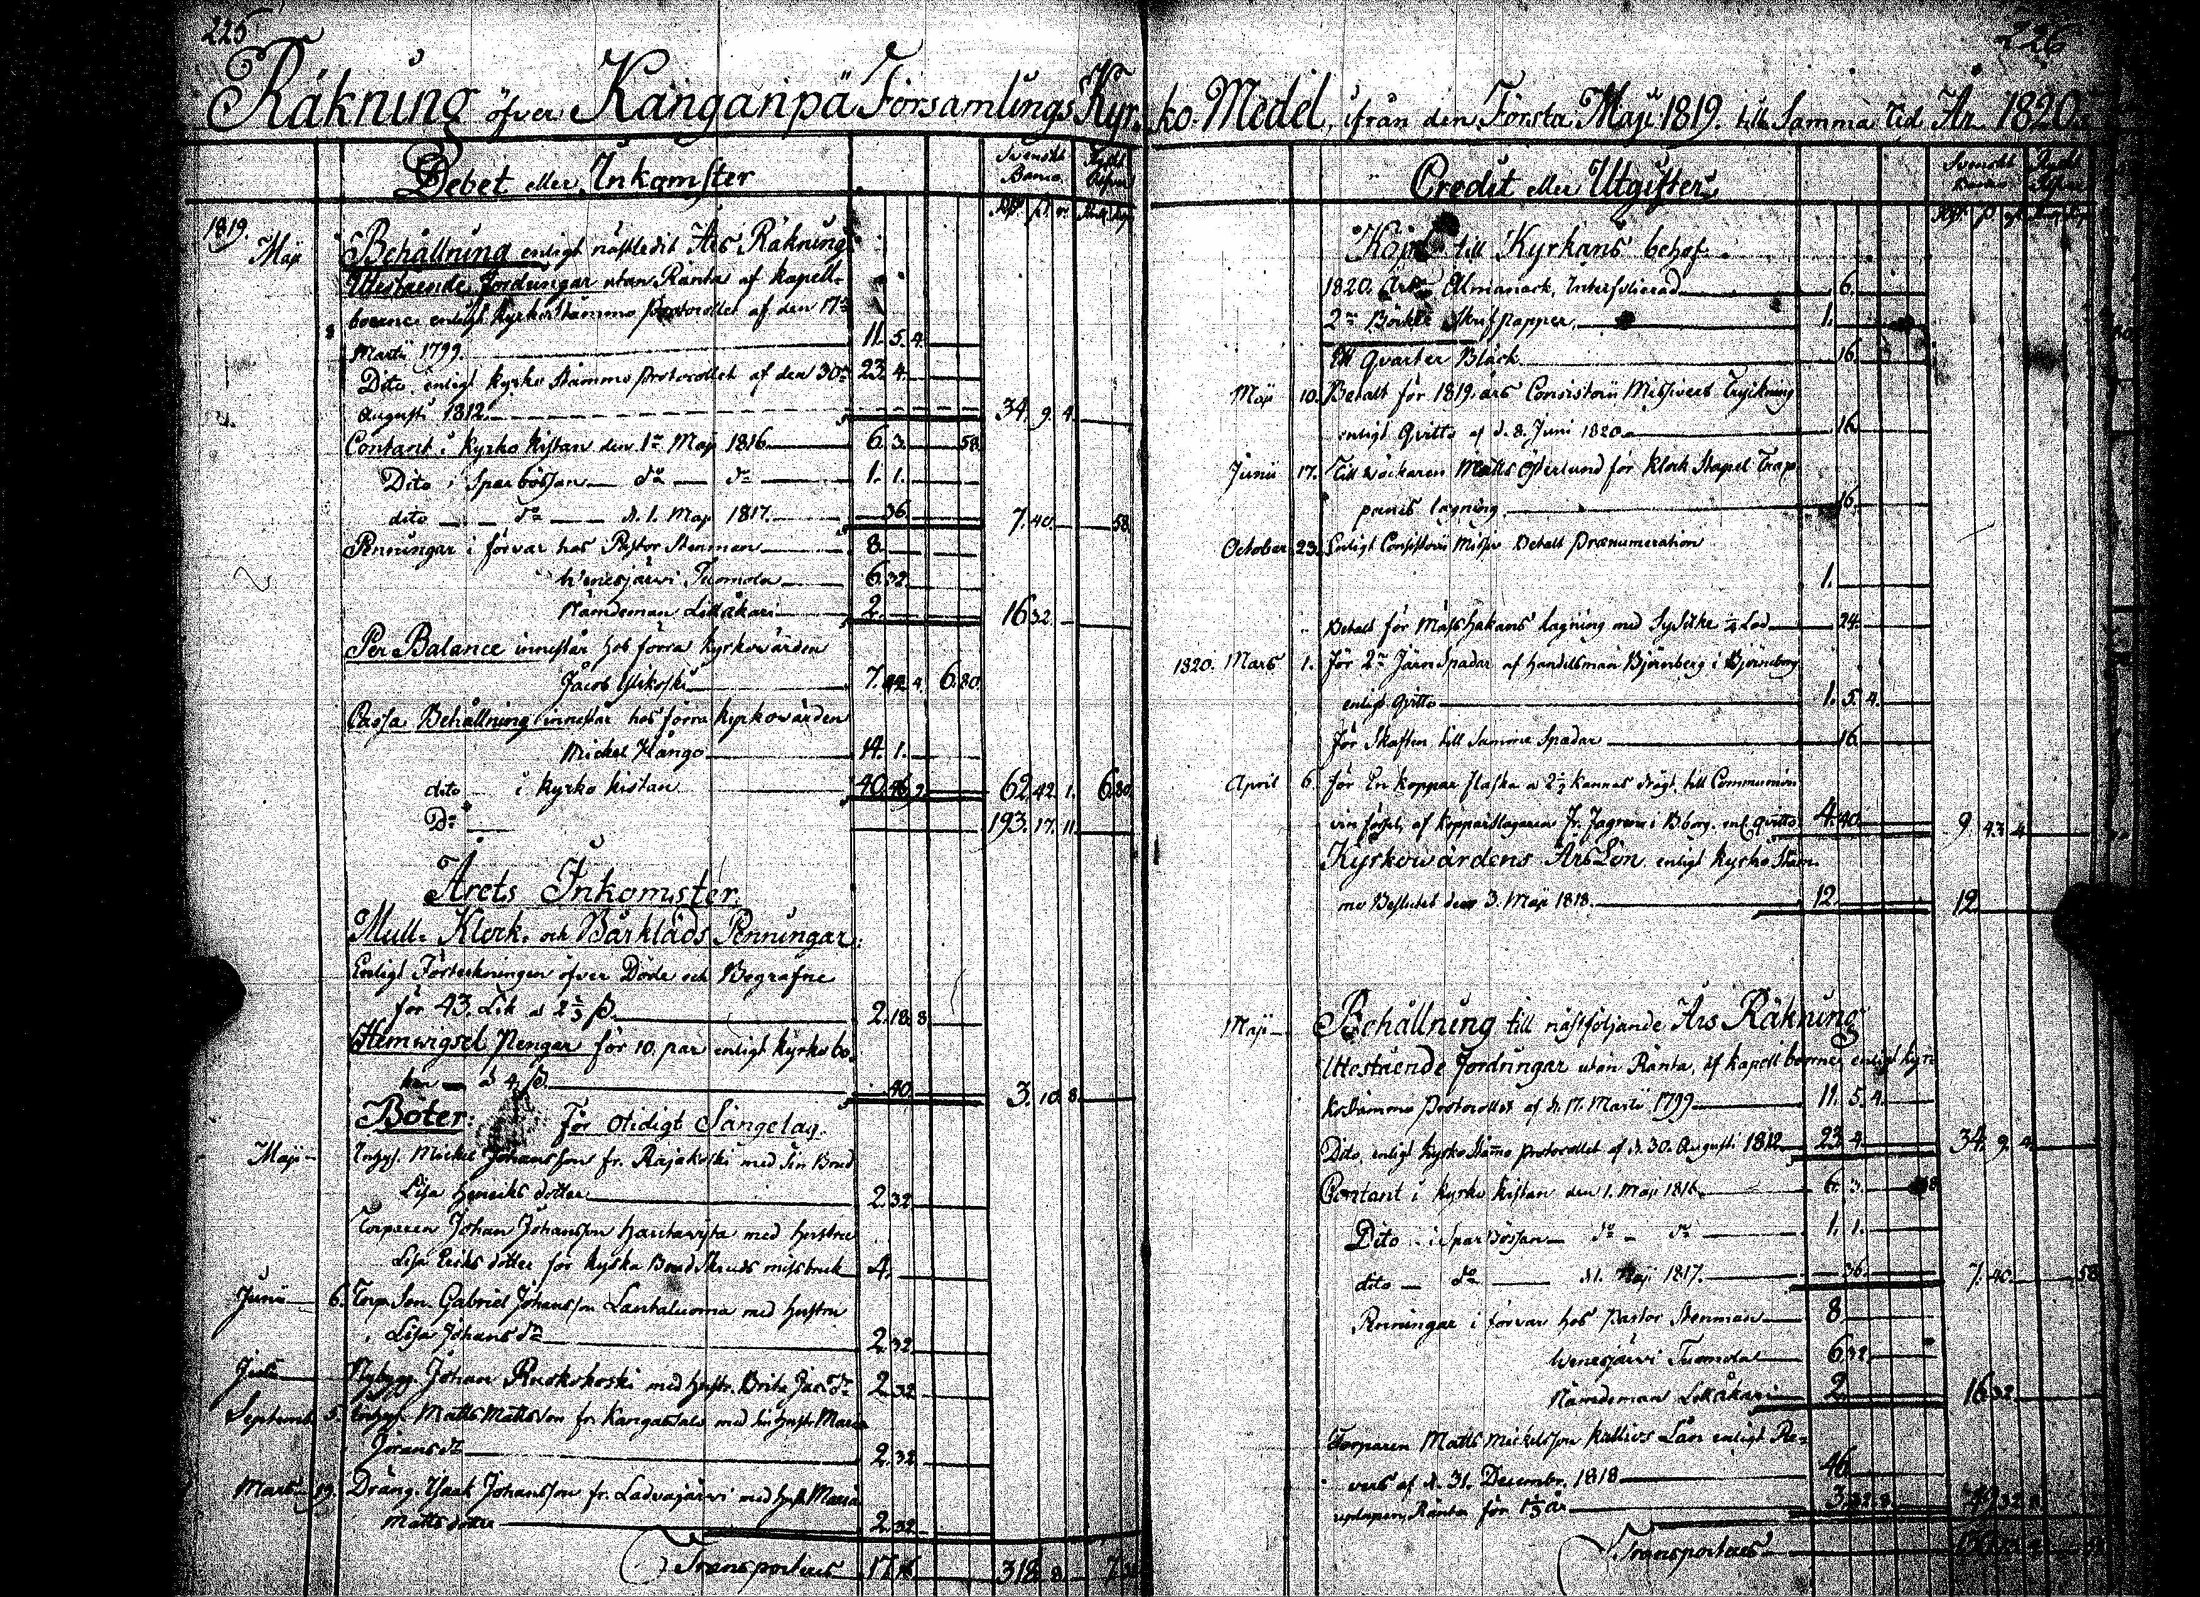 225
Räkning öfver Kanganpä Församlings Kyr-
Debet eller Inkomster
Svenskt Banco
1819.
Maji Behållning enligt nästledit Års Räkning
Utestående Fordringar utan Ränta af kapell-
boerne enligt Kyrko Stämmo Protocollet af den 17de
Martii 1799. 11. 5. 4.
Dito enligt Kyrko Stämmo Protocollet af den 30de 23. 4.
Augusti 1812. 34. 9. 4.
Contant i Kyrko Kistan den 1ste Maji 1816 6. 3. 58
Dito i Sparbössan do do 1. 1.
dito do d. 1. Maji 1817. 36 7. 40. 58
Penningar i förvar hos Pastor Stenman 8
Wenesjärvi Tuomola 6. 32.
Nämdeman Littåkari 2 16. 32.
Per Balance innestår hos förra Kyrkowärden
Jacob Ylikoski 7. 42. 4. 6. 80
Cassa Behållning innestår hos förra Kyrkowärden
Michel Kångo 14. 1.
dito i Kyrko Kistan 40. 46. 9. 62. 42. 1. 6. 80
Do 193. 17. 11.
Årets Inkomster.
Mull- Klock- och Bårkläds Penningar:
Enligt Förtekningen öfver Döde och Begrafne
för 43. Lik a 2 2/3 ß. 2. 18. 8.
Hemwigsel Pengar för 10. par enligt Kyrko bo-
ken a 4 ß. 40. 3. 10. 8.
Böter: För Otidigt Sängelag.
Maji Inhys. Michel Johansson fr. Rajakoski med sin Brud
Lisa Henriks dotter 2. 32
Torparen Johan Johansson Hautawijta med hustru
Lisa Eriks dotter för Kyska Brud Skruds missbruk 4.
Junii 6. Torp. Son. Gabriel Johansson Lantaluoma med hustru
Lisa Johans dr 2. 32.
Julii Nybygg. Johan Ruokokoski med hustr. Brita Jacs dr 2. 32
Septemb. 5. Inhys. Matts Mattsson fr. Kangasalo med sin hustr. Maria
Jörans dr 2. 32.
Mars 19. Dräng. Isaak Johansson fr. Ladvajärvi med hust. Maria
Matts dotter 2. 32
Transporteras 17. 16 318. 8. 7.
226
ko-Medel, ifrån den Första Maji 1819. till Samma tid År 1820.
Credit eller Utgifter
Svenskt Banco
Köpt till Kyrkans behof.
1820. Års Almanack, Interfolierad 6.
2ne Böcker Skrifpapper, 1.
Ett Qvarter Bläck 16
Maji 10. Betalt för 1819. års Consistorii Missivers Tryckning
enligt Qvitto af d. 8. Juni 1820. 16.
Junii 17. Till Wäckaren Matts Österlund för Klock Stapel Trap-
pornes lagning. 16.
October 23. Enligt Consistorii Missiv Betalt Prænumeration
1.
Betalt för Mässhakans lagning med Sysilke 1/4 Lod 24.
1820. Mars 1. För 2ne Järn Spadar af Handelsman Björnberg i Björneborg
enligt Qvitto 1. 5. 4.
För Skaften till Samma Spadar 16
April 6. För En koppar flaska a 2 1/2 kannas drägt, till Communion
vin förssel, af Kopparslagaren Fr. Jagren i B:borg. enl. Qvitto 4. 40. 9. 43. 4
Kyrkowärdens Års Lön enligt Kyrko Stäm-
mo Beslutet den 3. Maji 1818. 12. 12
Maji Behållning till nästföljande Års Räkning
Utestående Fordringar utan Ränta, af kapell boerne, enligt Kyr-
ko Stämmo Protocollet af d. 17. Martii 1799 11. 5. 4.
Dito, enligt Kyrko Stämmo protocollet af d. 30. Augusti 1812 23. 4. 34. 9. 4.
Contant i Kyrko Kistan den 1. Maji 1816 6. 3. 58
Dito i Sparbössan do do 1. 1.
dito do d. 1. Maji 1817. 36. 7. 40. 58
Penningar i förvar hos Pastor Stenman 8
Wenesjärvi Tuomola 6. 32
Nämdeman Littåkari 2 16. 32
Torparen Matts Mickelsson Kallios Lån enligt Re-
vers af d. 31. Decembr. 1818 46
upplupen Ränta för 1 1/3 år 3. 32. 8. 49. 32. 8
Transporteras